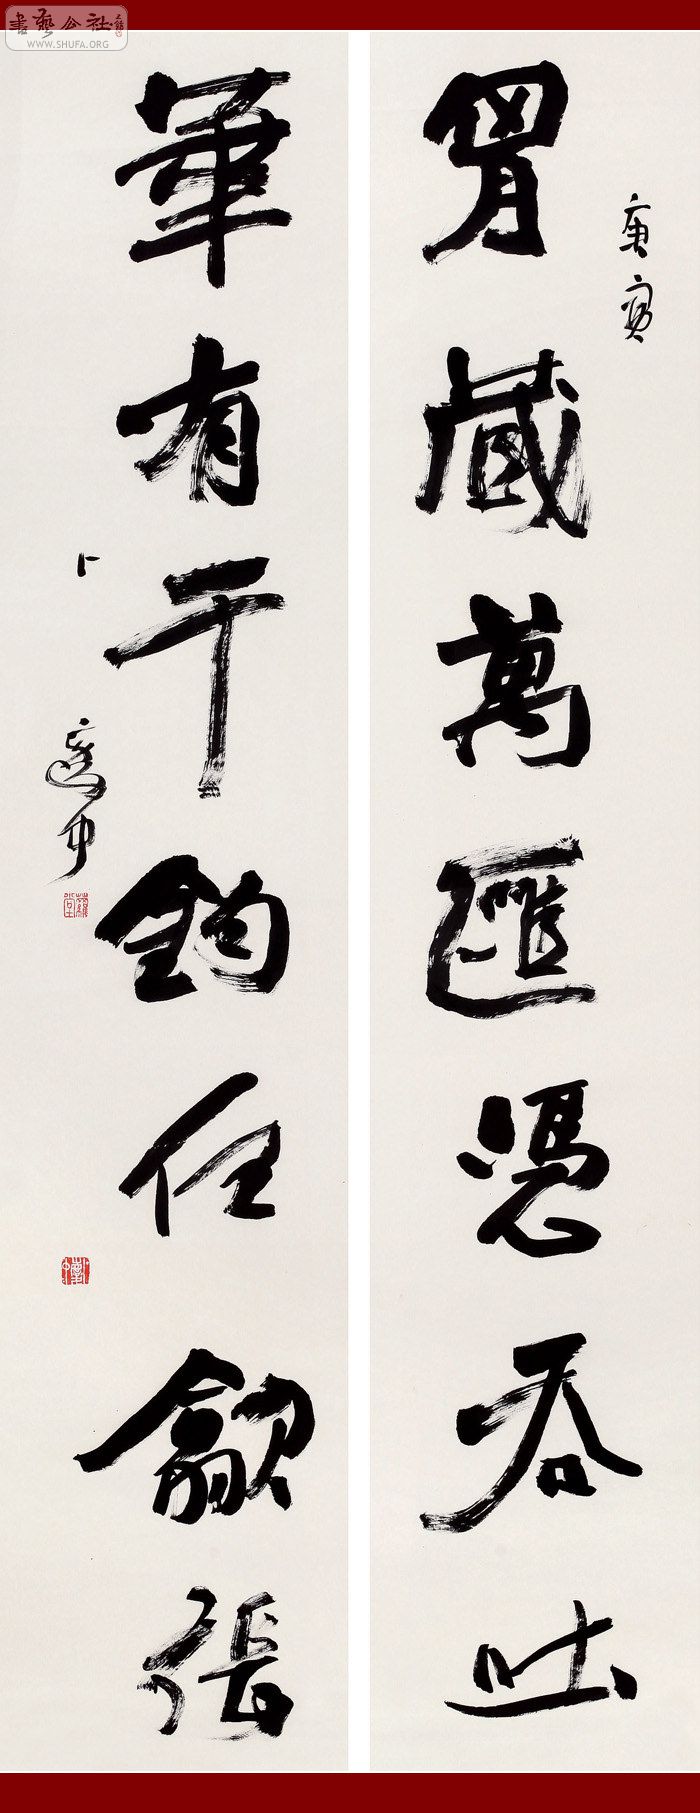 書藝公社
WWW.SHUFA.ORG
庚寅
胃藏萬匯憑吞吐
筆有千鈞任歙張
卜